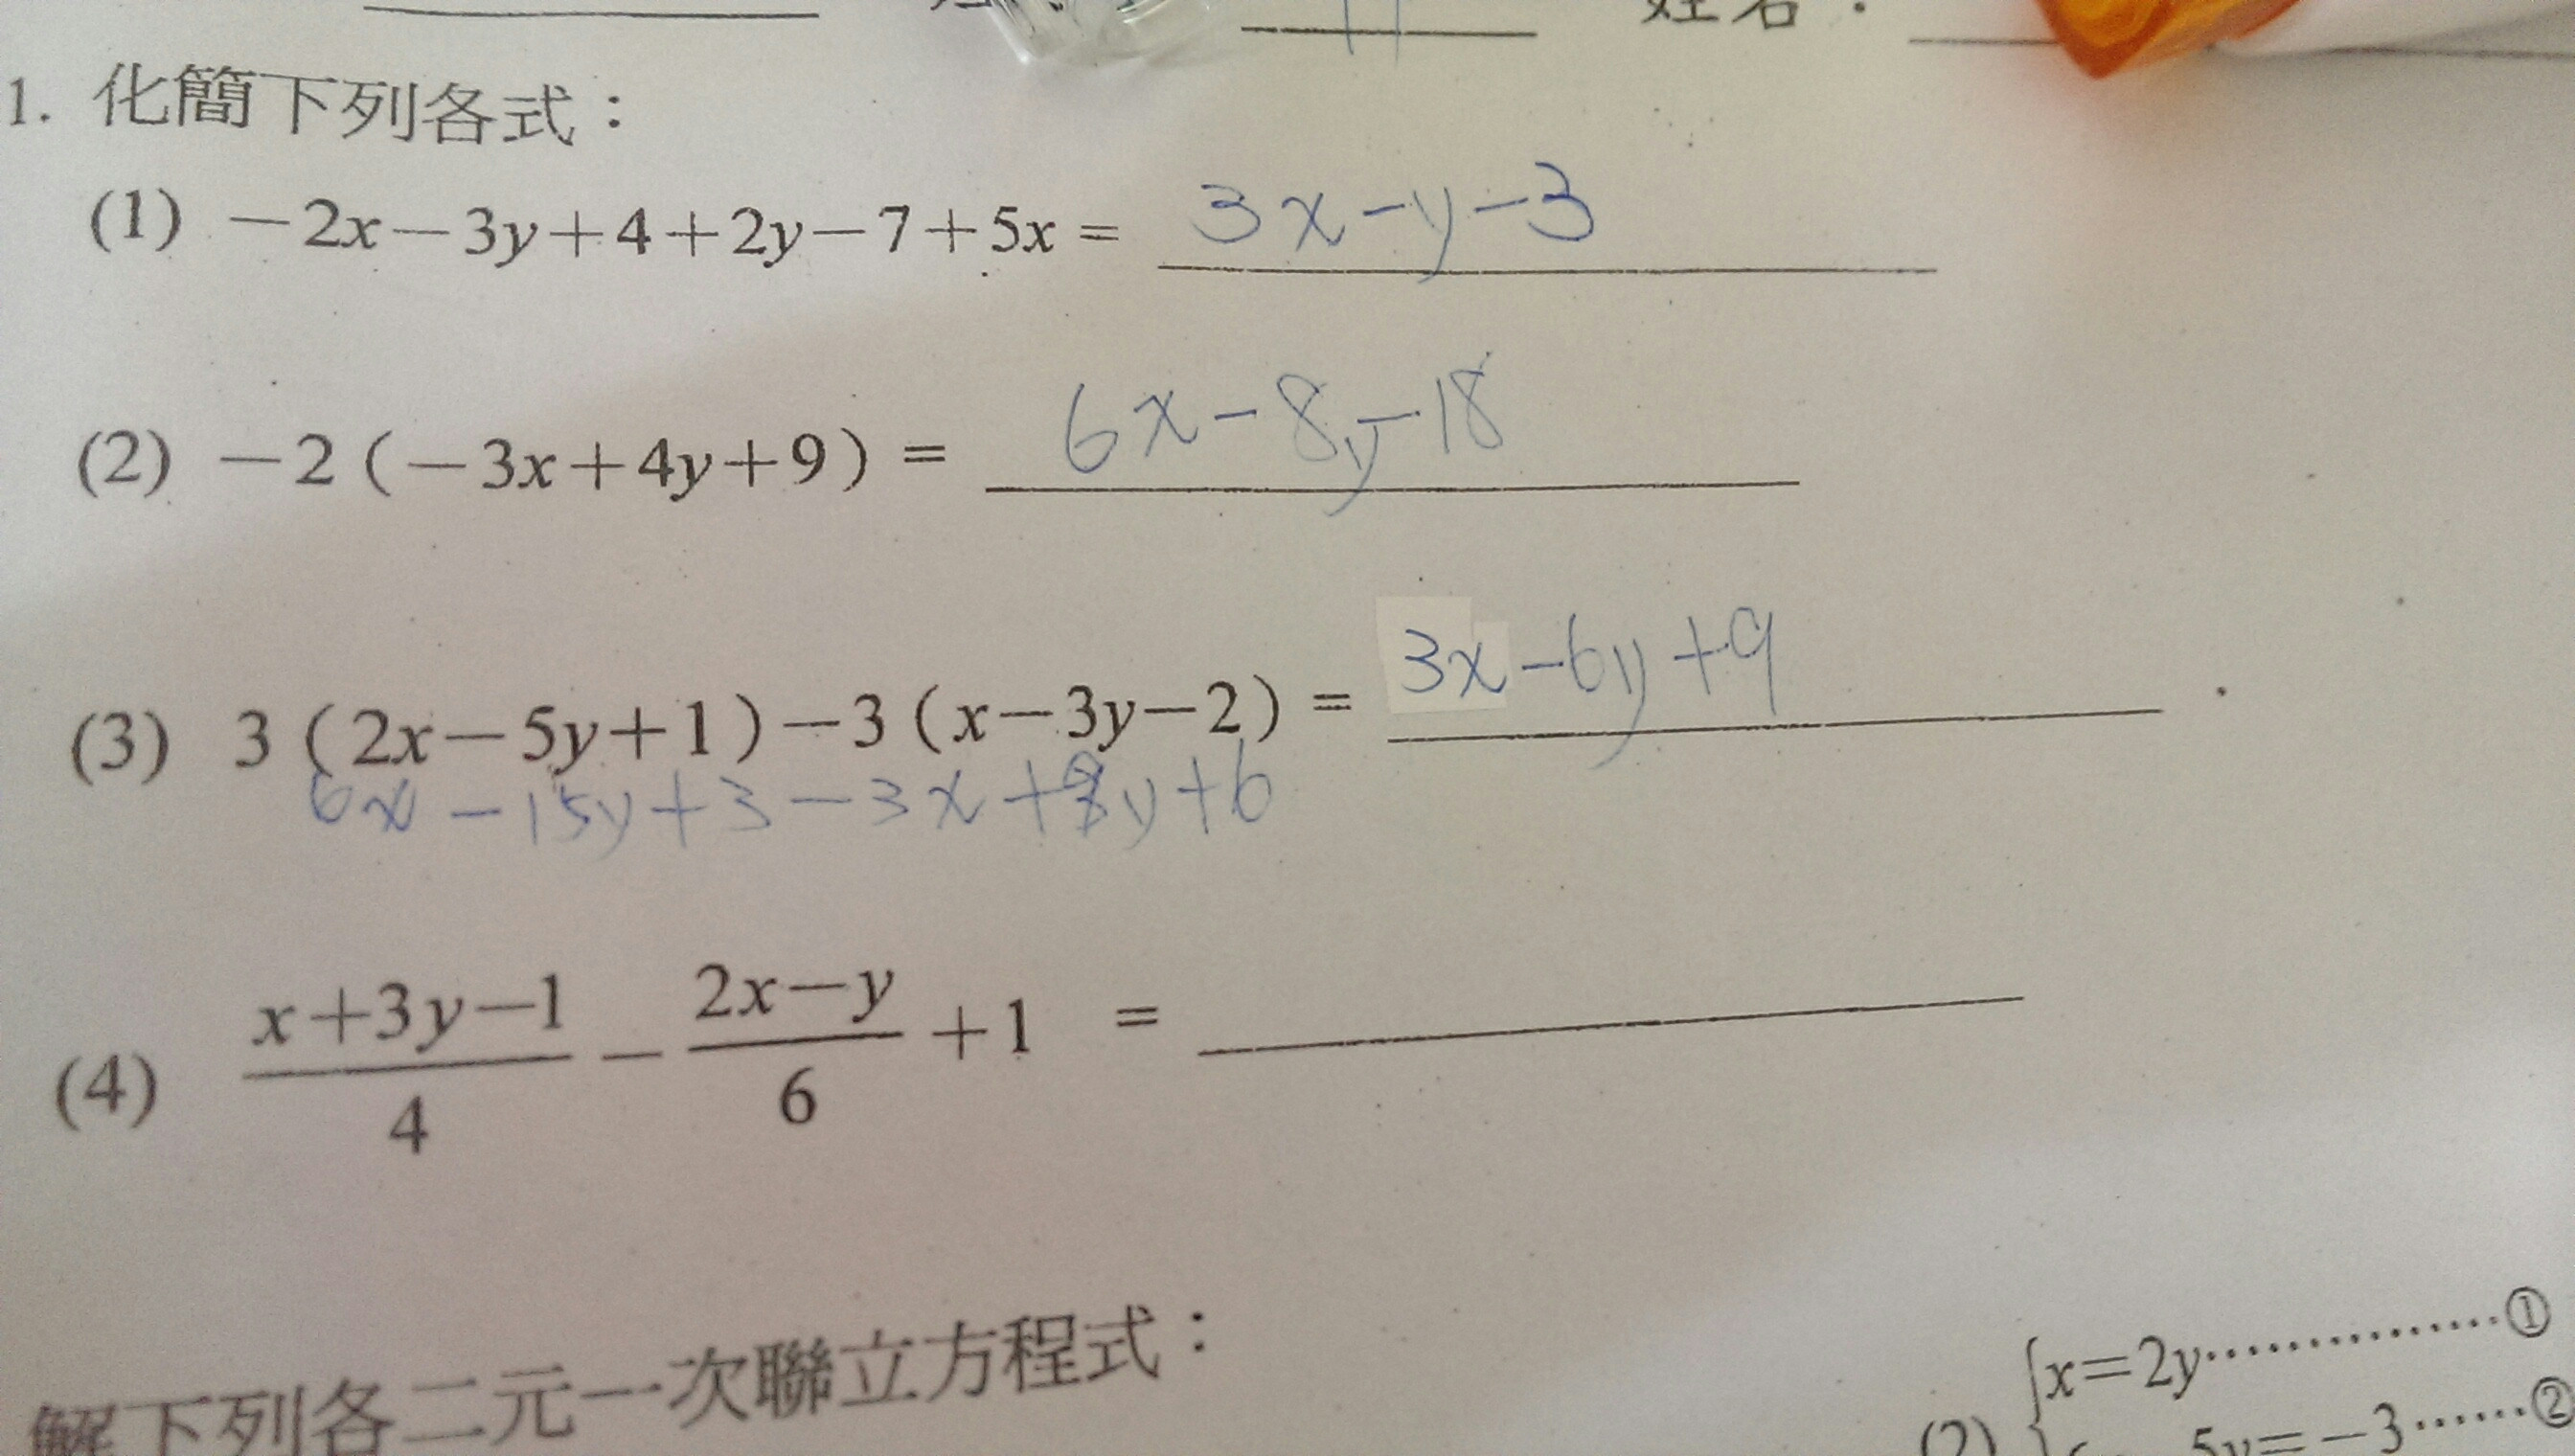 姓名：
1. 化簡下列各式：
(1) －2x－3y＋4＋2y－7＋5x = 3x－y－3
(2) －2（－3x＋4y＋9）= 6x－8y－18
(3) 3（2x－5y＋1）－3（x－3y－2）= 3x－6y＋9
6x－15y＋3－3x＋9y＋6
(4) \frac{x＋3y－1}{4}－\frac{2x－y}{6}＋1 =
解下列各二元一次聯立方程式：
(2) { x＝2y……………①
5y＝－3……②